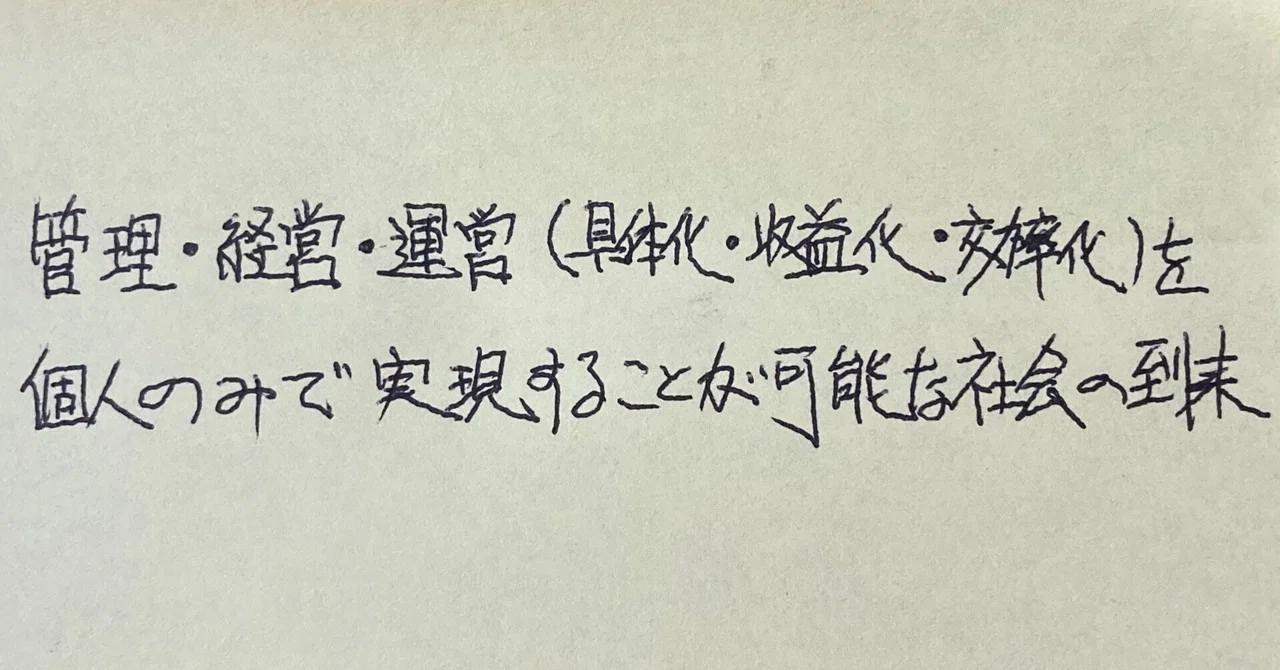 管理・経営・運営(具体化・収益化・効率化)を
個人のみで実現することが可能な社会の到来